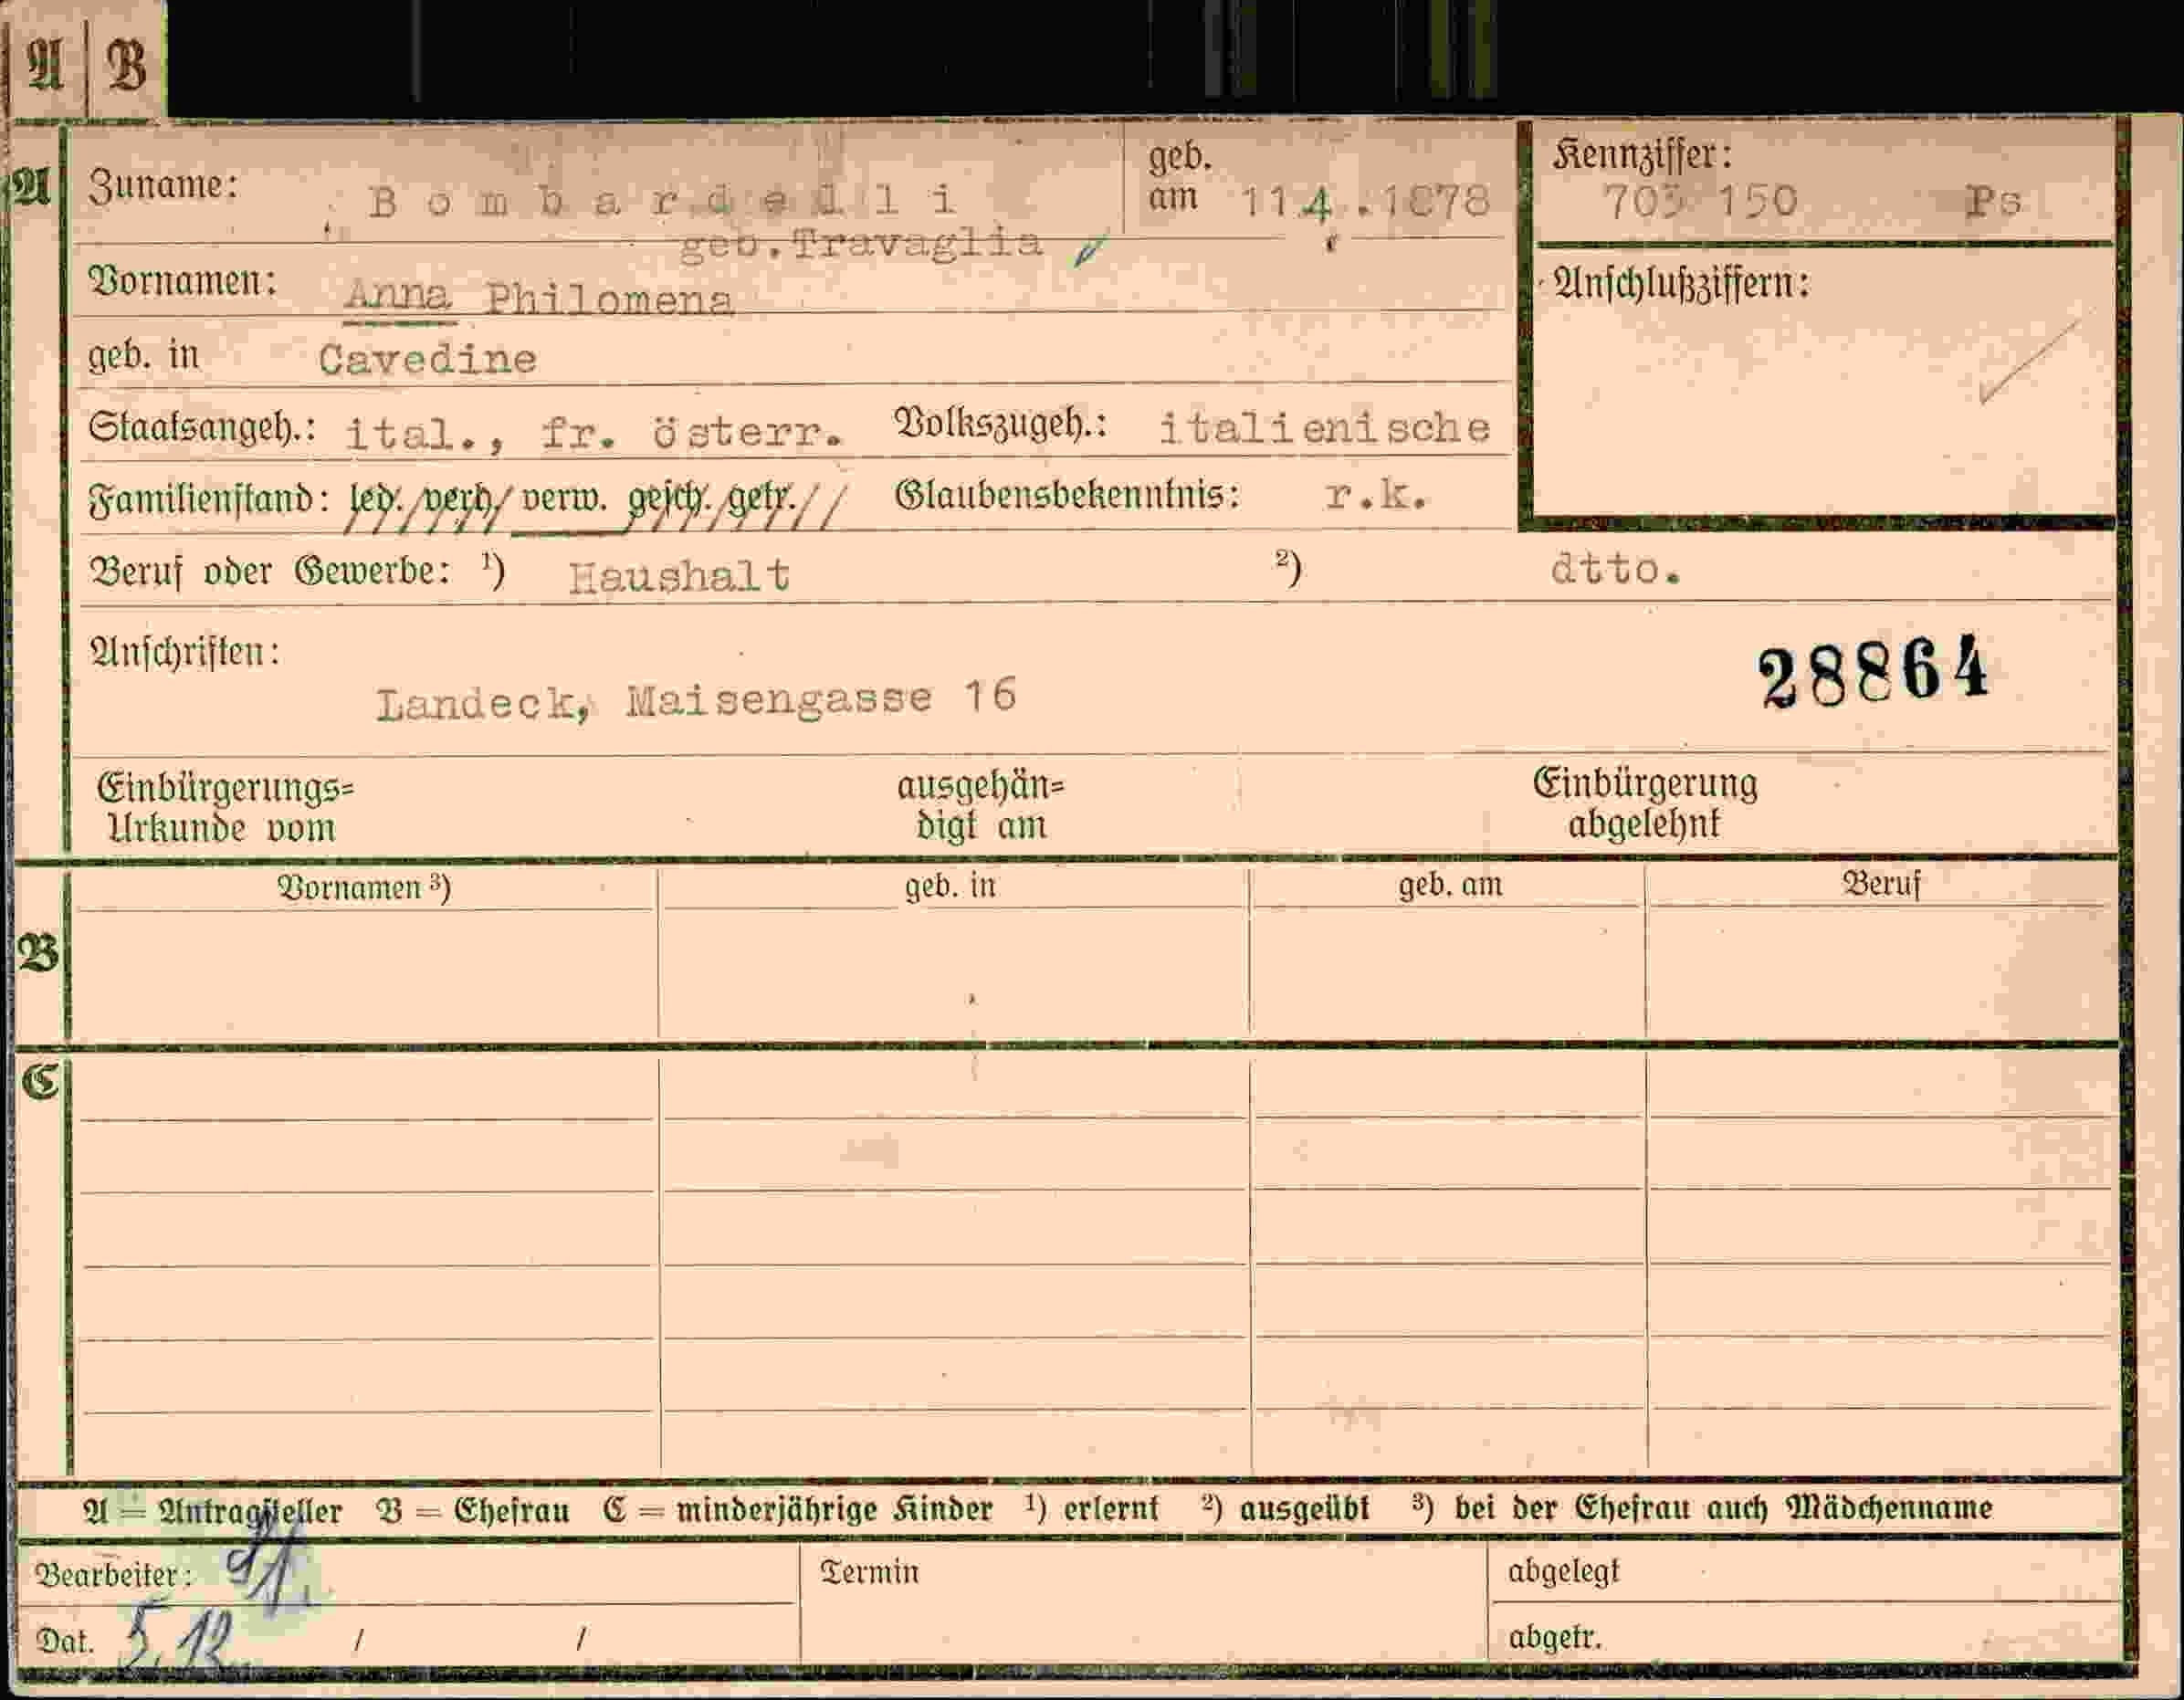 A B
A Zuname: Bombardelli geb. am 11.4.1878 Kennziffer: 703 150 Ps
geb. Travaglia
Vornamen: Anna Philomena Anschlußziffern:
geb. in Cavedine
Staatsangeh.: ital., fr. österr. Volkszugeh.: italienische
Familienstand: led. verh. verw. gesch. getr. Glaubensbekenntnis: r.k.
Beruf oder Gewerbe: ¹) Haushalt ²) dtto.
Anschriften: 28864
Landeck, Maisengasse 16
Einbürgerungs= ausgehän= Einbürgerung
Urkunde vom digt am abgelehnt
Vornamen ³) geb. in geb. am Beruf
B
C
A = Antragsteller B = Ehefrau C = minderjährige Kinder ¹) erlernt ²) ausgeübt ³) bei der Ehefrau auch Mädchenname
Bearbeiter: Termin abgelegt
Dat. 5.12. / / abgetr.